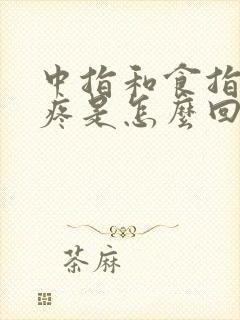 中指和食指
疼是怎麼回
荼麻